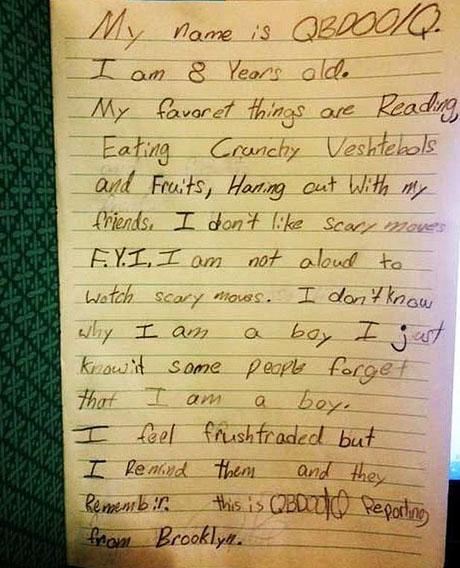 My name is QBDOO/Q.
I am 8 Years old.
My favoret things are Reading,
Eating Crunchy Veshtebols
and Fruits, Haning out With my
friends. I don't like scary moves
F.Y.I. I am not aloud to
watch scary moves. I don't know
why I am a boy I just
know it some people forget
that I am a boy.
I feel frushtraded but
I Remind them and they
Remembir. this is QBDOO/Q Reporting
from Brooklyn.